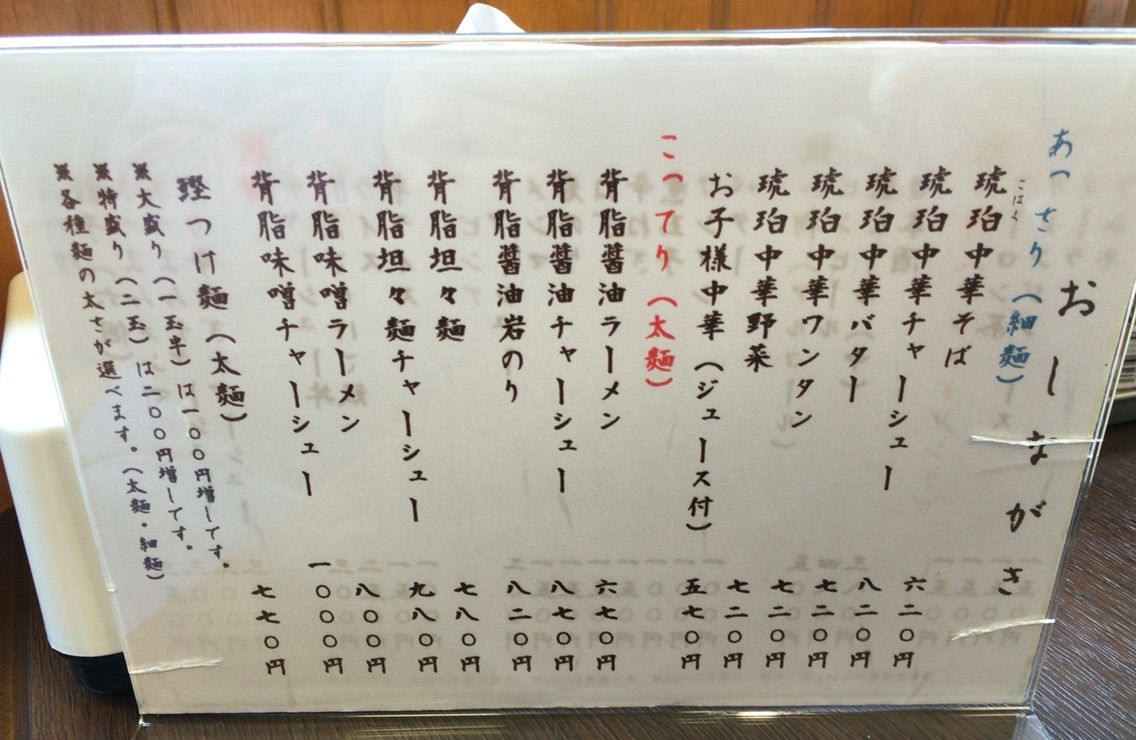 おしながき
あっさり（細麺）
こはく
琥珀中華そば 六二〇円
琥珀中華チャーシュー 八二〇円
琥珀中華バター 七二〇円
琥珀中華ワンタン 七二〇円
琥珀中華野菜 七二〇円
お子様中華（ジュース付） 五七〇円
こってり（太麺）
背脂醤油ラーメン 六七〇円
背脂醤油チャーシュー 八七〇円
背脂醤油岩のり 八二〇円
背脂坦々麺 七八〇円
背脂坦々麺チャーシュー 九八〇円
背脂味噌ラーメン 八〇〇円
背脂味噌チャーシュー 一〇〇〇円
鰹つけ麺（太麺） 七七〇円
※大盛り（一玉半）は一〇〇円増しです。
※特盛り（二玉）は二〇〇円増しです。
※各種麺の太さが選べます。（太麺・細麺）